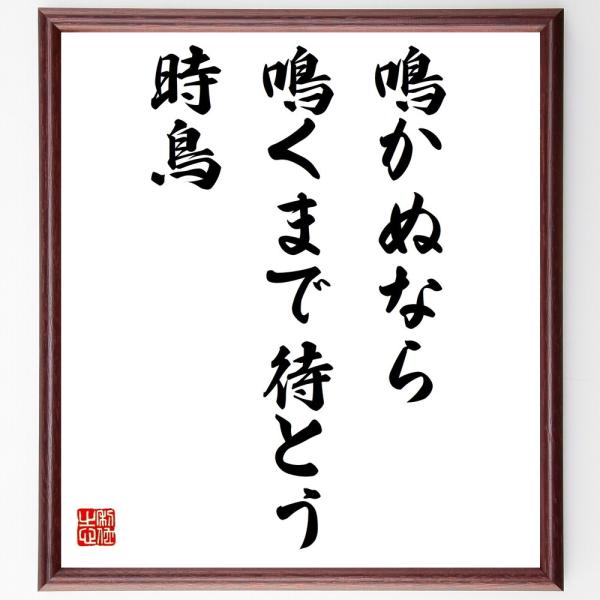 鳴かぬなら
鳴くまで待とう
時鳥